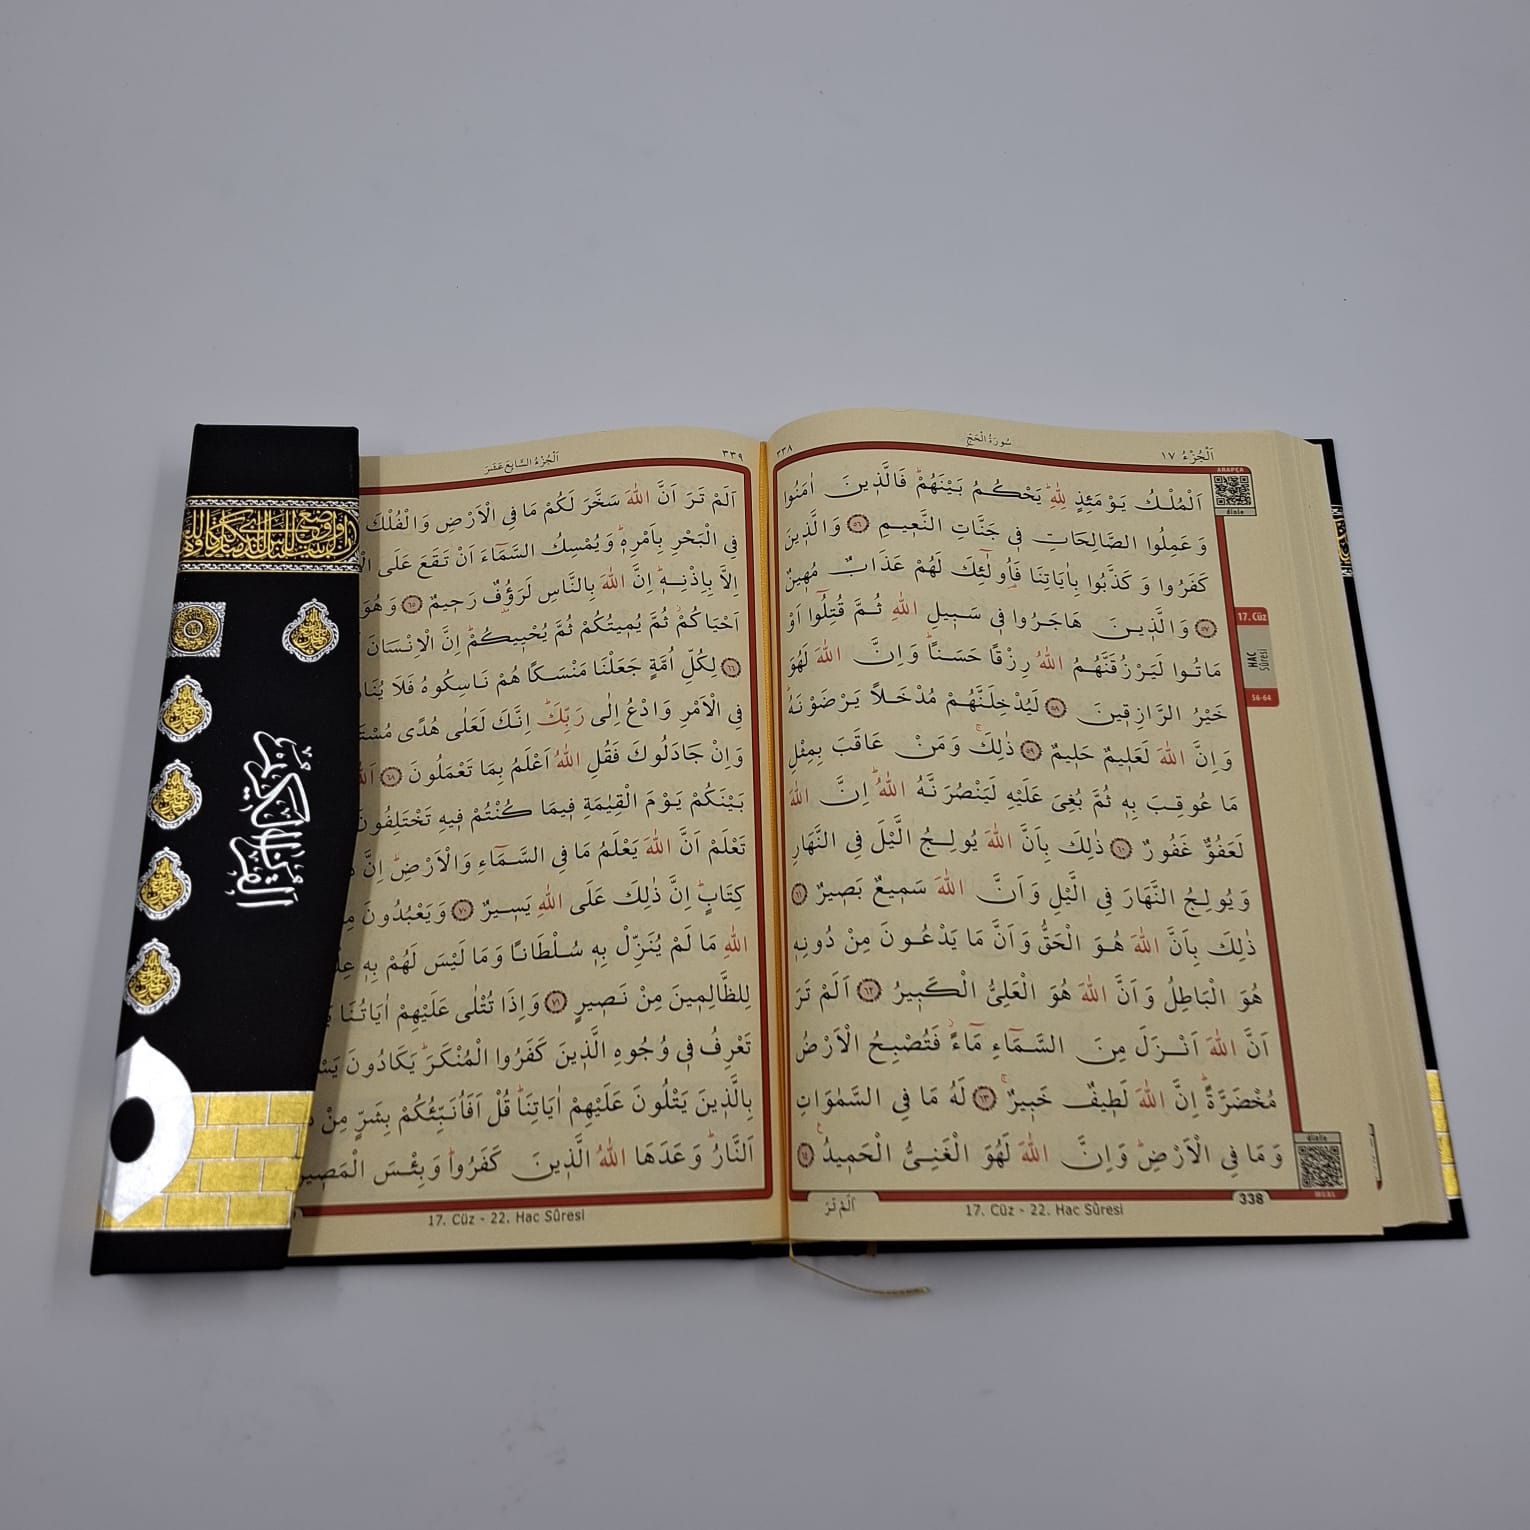 اَلْجُزْءُ ١٧
سُورَةُ الْحَجِّ
٣٣٨
ARAPÇA
dinle
اَلْمُلْكُ يَوْمَئِذٍ لِلّٰهِ يَحْكُمُ بَيْنَهُمْ فَالَّذ۪ينَ اٰمَنُوا
وَعَمِلُوا الصَّالِحَاتِ ف۪ي جَنَّاتِ النَّع۪يمِ ﴿٥٦﴾ وَالَّذ۪ينَ
كَفَرُوا وَكَذَّبُوا بِاٰيَاتِنَا فَاُو۬لٰٓئِكَ لَهُمْ عَذَابٌ مُه۪ينٌ
﴿٥٧﴾ وَالَّذ۪ينَ هَاجَرُوا ف۪ي سَب۪يلِ اللّٰهِ ثُمَّ قُتِلُٓوا اَوْ
مَاتُوا لَيَرْزُقَنَّهُمُ اللّٰهُ رِزْقًا حَسَنًاۜ وَاِنَّ اللّٰهَ لَهُوَ
خَيْرُ الرَّازِق۪ينَ ﴿٥٨﴾ لَيُدْخِلَنَّهُمْ مُدْخَلًا يَرْضَوْنَهُۜ
وَاِنَّ اللّٰهَ لَعَل۪يمٌ حَل۪يمٌ ﴿٥٩﴾ ذٰلِكَۚ وَمَنْ عَاقَبَ بِمِثْلِ
مَا عُوقِبَ بِه۪ ثُمَّ بُغِيَ عَلَيْهِ لَيَنْصُرَنَّهُ اللّٰهُۜ اِنَّ اللّٰهَ
لَعَفُوٌّ غَفُورٌ ﴿٦٠﴾ ذٰلِكَ بِاَنَّ اللّٰهَ يُولِجُ الَّيْلَ فِي النَّهَارِ
وَيُولِجُ النَّهَارَ فِي الَّيْلِ وَاَنَّ اللّٰهَ سَم۪يعٌ بَص۪يرٌ ﴿٦١﴾
ذٰلِكَ بِاَنَّ اللّٰهَ هُوَ الْحَقُّ وَاَنَّ مَا يَدْعُونَ مِنْ دُونِه۪
هُوَ الْبَاطِلُ وَاَنَّ اللّٰهَ هُوَ الْعَلِيُّ الْكَب۪يرُ ﴿٦٢﴾ اَلَمْ تَرَ
اَنَّ اللّٰهَ اَنْزَلَ مِنَ السَّمَٓاءِ مَٓاءًۘ فَتُصْبِحُ الْاَرْضُ
مُخْضَرَّةًۜ اِنَّ اللّٰهَ لَط۪يفٌ خَب۪يرٌۚ ﴿٦٣﴾ لَهُ مَا فِي السَّمٰوَاتِ
وَمَا فِي الْاَرْضِۜ وَاِنَّ اللّٰهَ لَهُوَ الْغَنِيُّ الْحَم۪يدُ۟ ﴿٦٤﴾
17. Cüz
HAC
Sûresi
56-64
dinle
MEAL
338
17. Cüz - 22. Hac Sûresi
اَلَمْ تَرَ
٣٣٩
اَلْجُزْءُ السَّابِعَ عَشَرَ
اَلَمْ تَرَ اَنَّ اللّٰهَ سَخَّرَ لَكُمْ مَا فِي الْاَرْضِ وَالْفُلْكَ
فِي الْبَحْرِ بِاَمْرِه۪ۜ وَيُمْسِكُ السَّمَٓاءَ اَنْ تَقَعَ عَلَى
اِلَّا بِاِذْنِه۪ۜ اِنَّ اللّٰهَ بِالنَّاسِ لَرَؤُ۫فٌ رَح۪يمٌ ﴿٦٥﴾ وَهُوَ
اَحْيَاكُمْۘ ثُمَّ يُم۪يتُكُمْ ثُمَّ يُحْي۪يكُمْۜ اِنَّ الْاِنْسَانَ
﴿٦٦﴾ لِكُلِّ اُمَّةٍ جَعَلْنَا مَنْسَكًا هُمْ نَاسِكُوهُ فَلَا
فِي الْاَمْرِ وَادْعُ اِلٰى رَبِّكَۜ اِنَّكَ لَعَلٰى هُدًى
وَاِنْ جَادَلُوكَ فَقُلِ اللّٰهُ اَعْلَمُ بِمَا تَعْمَلُونَ ﴿٦٨﴾
بَيْنَكُمْ يَوْمَ الْقِيٰمَةِ ف۪يمَا كُنْتُمْ ف۪يهِ تَخْتَلِفُونَ
تَعْلَمْ اَنَّ اللّٰهَ يَعْلَمُ مَا فِي السَّمَٓاءِ وَالْاَرْضِۜ اِنَّ
كِتَابٍۜ اِنَّ ذٰلِكَ عَلَى اللّٰهِ يَس۪يرٌ ﴿٧٠﴾ وَيَعْبُدُونَ
اللّٰهِ مَا لَمْ يُنَزِّلْ بِه۪ سُلْطَانًا وَمَا لَيْسَ لَهُمْ بِه۪
لِلظَّالِم۪ينَ مِنْ نَص۪يرٍ ﴿٧١﴾ وَاِذَا تُتْلٰى عَلَيْهِمْ اٰيَاتُنَا
تَعْرِفُ ف۪ي وُجُوهِ الَّذ۪ينَ كَفَرُوا الْمُنْكَرَۜ يَكَادُونَ
بِالَّذ۪ينَ يَتْلُونَ عَلَيْهِمْ اٰيَاتِنَاۜ قُلْ اَفَاُنَبِّئُكُمْ بِشَرٍّ مِنْ
اَلنَّارُۜ وَعَدَهَا اللّٰهُ الَّذ۪ينَ كَفَرُواۜ وَبِئْسَ الْمَص۪يرُ
17. Cüz - 22. Hac Sûresi
اَلْقُرْاٰنُ الْكَر۪يمُ